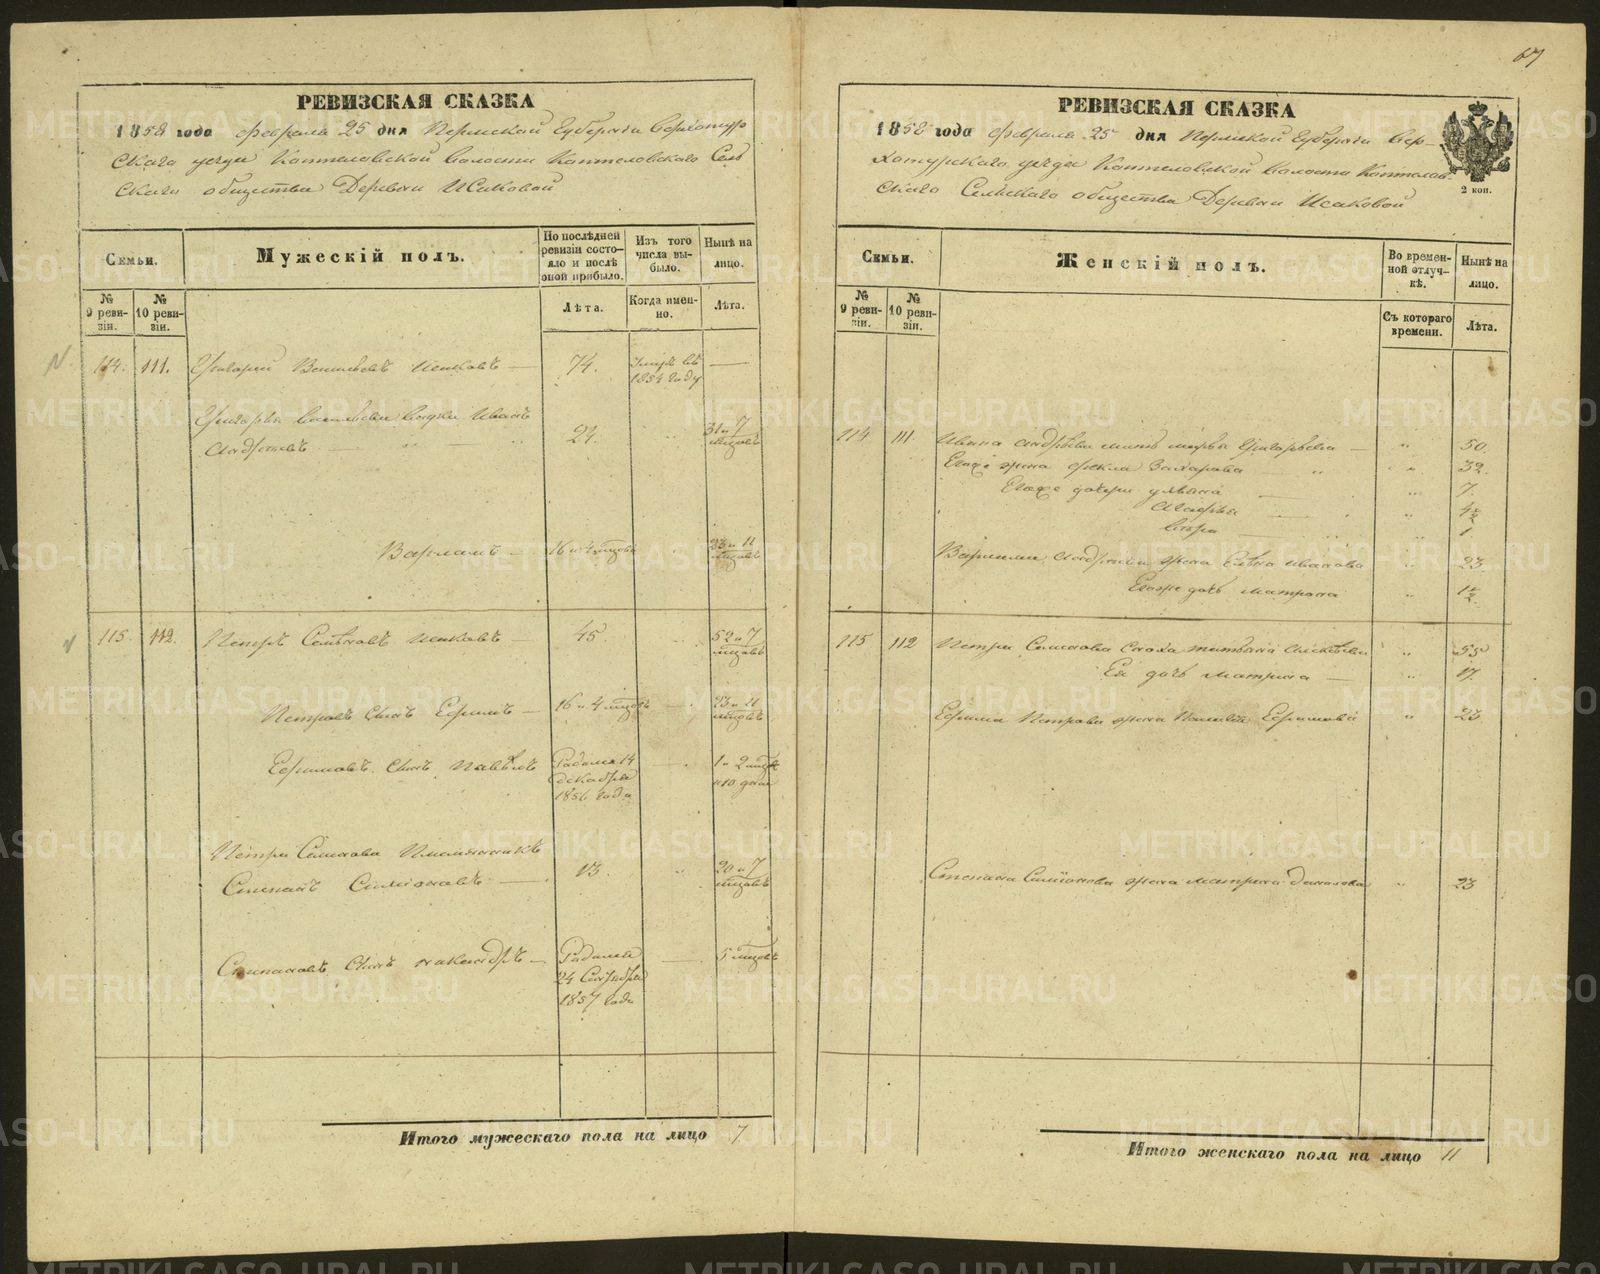 67
РЕВИЗСКАЯ СКАЗКА
1858 года февраля 25 дня Пермской Губернии Верхотур
скаго уезда Коптеловской волости Коптеловскаго Сель
скаго общества Деревни Исаковой
Семьи.
Мужескій полъ.
По послѣдней ревизіи состояло и послѣ оной прибыло.
Изъ того числа выбыло.
Нынѣ на лицо.
№ 9 ревизіи.
№ 10 ревизіи.
Лѣта.
Когда именно.
Лѣта.
114. 111. Григорий Васильевъ Исаковъ — 74. Умеръ въ 1854 году —
Григорья Васильева внуки Иванъ
Андреевъ — 24. 31 и 7 месяцовъ
Варламъ — 16 и 4 месяцовъ 23 и 11 месяцовъ
115. 112. Петръ Семеновъ Исаковъ — 45. 52 и 7 месяцовъ
Петровъ сынъ Ефимъ — 16 и 4 месяцовъ — 23 и 11 месяцовъ
Ефимовъ сынъ Павелъ Родился 14 декабря 1856 года — 1 и 2 месяца и 10 дней
Петра Семенова племянникъ
Степанъ Симоновъ — 13. 20 и 7 месяцовъ
Степановъ сынъ — Родился 24 Сентября 1857 года — 5 месяцовъ
Итого мужескаго пола на лицо 7
РЕВИЗСКАЯ СКАЗКА
1858 года февраля 25 дня Пермской Губернии Вер-
хотурскаго уезда Коптеловской волости Коптелов-
скаго Сельскаго общества Деревни Исаковой
2 коп.
Семьи.
Женскій полъ.
Во временной отлучкѣ.
Нынѣ на лицо.
№ 9 ревизіи.
№ 10 ревизіи.
Съ котораго времени.
Лѣта.
114 111 Ивана Андреева мать Марья Григорьева — 50.
Егоже жена Фекла Захарова — 32.
Егоже дочери Ульяна — 7.
— 4½
1
Варлама Андреева жена Елена Иванова 23.
Егоже дочь Матрона 1½.
115 112 Петра Семенова сноха Татьяна 55
Ея дочь Матрона — 17.
Ефима Петрова жена Ефимова 23
Степана Симонова жена Матрена 23
Итого женскаго пола на лицо 11
METRIKI.GASO-URAL.RU